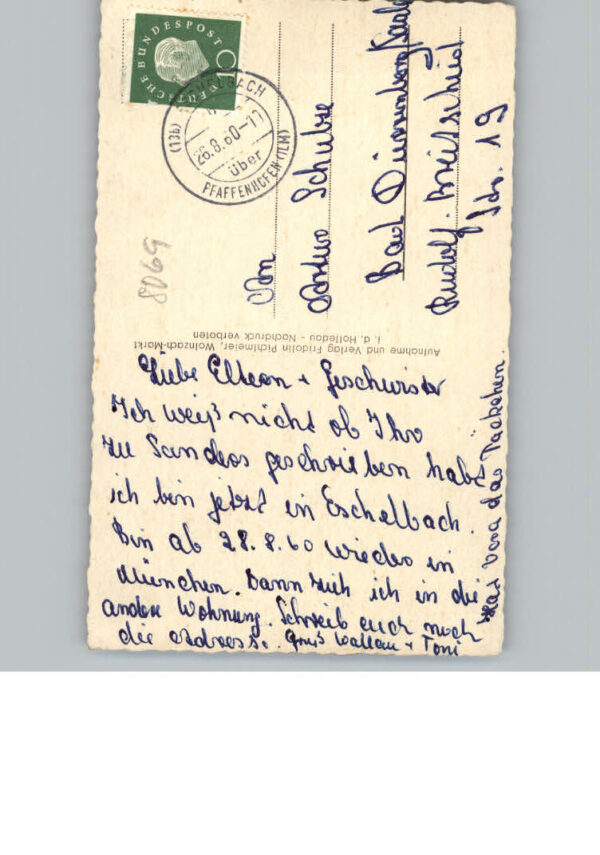 DEUTSCHE BUNDESPOST
(13b) ESCHELBACH
26.8.60-17
über
PFAFFENHOFEN (ILM)
8069
An
Schulze
Bad Dürrenberg/Saale
Rudolf-Breitscheid
Str. 19
Aufnahme und Verlag Fridolin Pichlmeier, Wolnzach-Markt
i. d. Holledau - Nachdruck verboten
Liebe Eltern + Geschwister
Ich weiß nicht ob Ihr
zu Sandros geschrieben habt
ich bin jetzt in Eschelbach.
Bin ab 28.8.60 wieder in
München. Dann zieh ich in die
andere Wohnung. Schreib euch noch
die Adresse. Gruß + Toni
Hat das Päckchen.